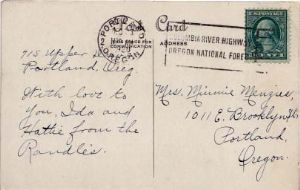 PORTLAND
OREGON
Card
SPACE FOR
COMMUNICATION
ADDRESS
COLUMBIA RIVER HIGHWAY
OREGON NATIONAL FOREST
715 Upper
Portland, Oreg
With love to
You, Ida and
Hattie from the
Randles.
Mrs. Minnie Menzies,
1011 E. Brooklyn St.
Portland,
Oregon.